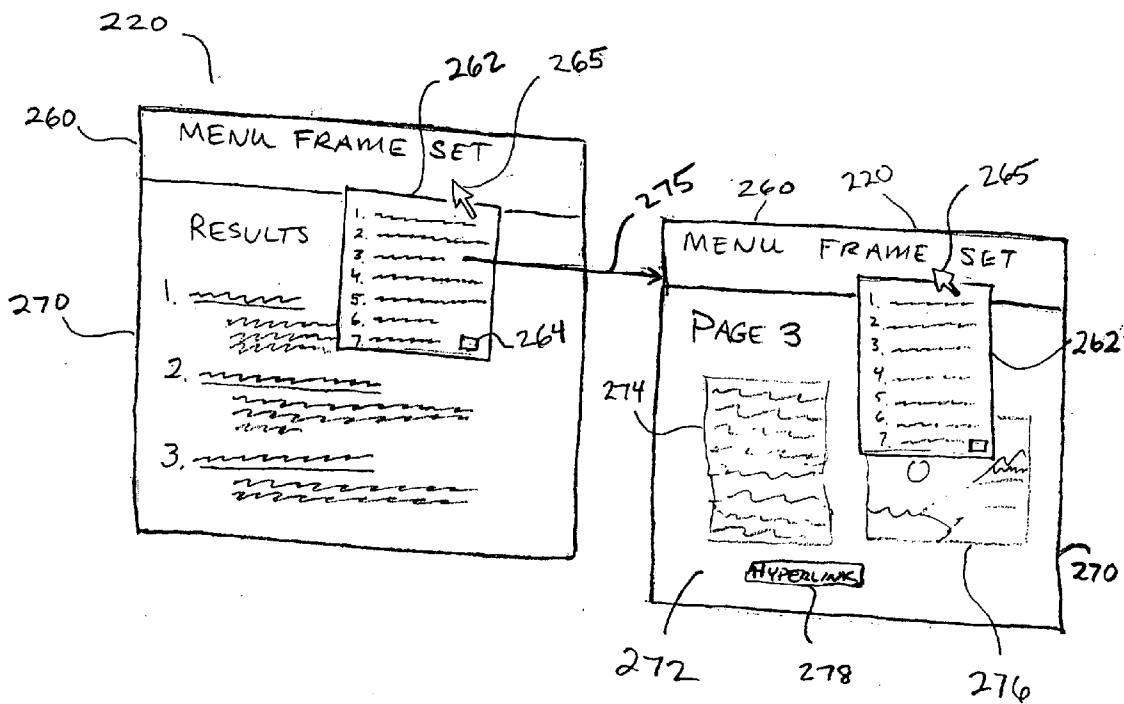 220
262
265
260
MENU FRAME SET
RESULTS
1.
2.
3.
4.
5.
6.
7.
264
270
1.
2.
3.
275
260
220
265
MENU FRAME SET
PAGE 3
1.
2.
3.
4.
5.
6.
7.
262
274
HYPERLINK
270
272
278
276